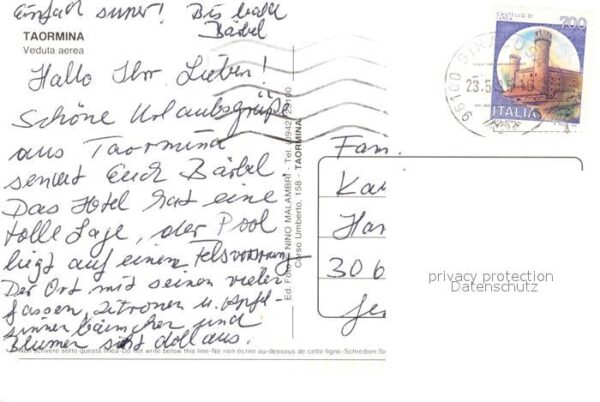 Einfach super! Bis bald
Bärbel
TAORMINA
Veduta aerea
Hallo Ihr Lieben!
Schöne Urlaubsgrüße
aus Taormina
sendet Euch Bärbel.
Das Hotel hat eine
tolle Lage, der Pool
liegt auf einem Felsvorsprung
Der Ort mit seinen vielen
Gassen, Zitronen u. Apfel-
sinnenbäumchen und
Blumen sieht doll aus.
Non scrivere sotto questa linea-Do not write below this line-Ne rien écrire au-dessous de cette ligne-Schreiben Si
Ed. Foto NINO MALAMBRI - Tel. (0942)
Corso Umberto, 158 - TAORMINA
CASTELLO DI
IVREA
700
ITALIA
96100 SIRACUSA
23.5.
Fam.
Ka
Han
306
privacy protection
Datenschutz